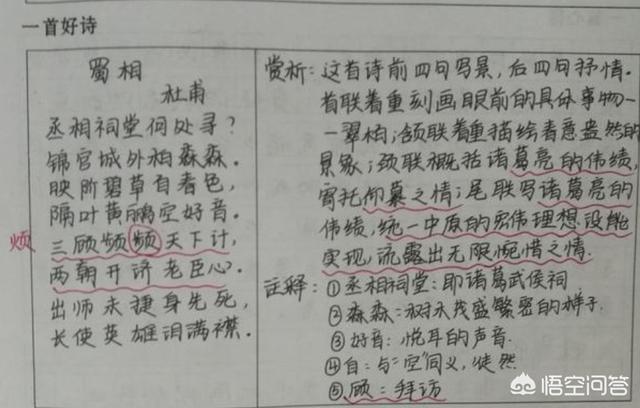 一首好诗
蜀相
杜甫
丞相祠堂何处寻?
锦宫城外柏森森.
映阶碧草自春色,
隔叶黄鹂空好音.
烦
三顾频频天下计,
两朝开济老臣心.
出师未捷身先死,
长使英雄泪满襟.
赏析:这首诗前四句写景,后四句抒情.
首联着重刻画眼前的具体事物—
—翠柏;颔联着重描绘春意盎然的
景象;颈联概括诸葛亮的伟绩,
寄托仰慕之情;尾联写诸葛亮的
伟绩,统一中原的宏伟理想没能
实现,流露出无限惋惜之情.
注释:①丞相祠堂:即诸葛武侯祠
②森森:树木茂盛繁密的样子.
③好音:悦耳的声音.
④自:与“空”同义,徒然
⑤顾:拜访
悟空问答